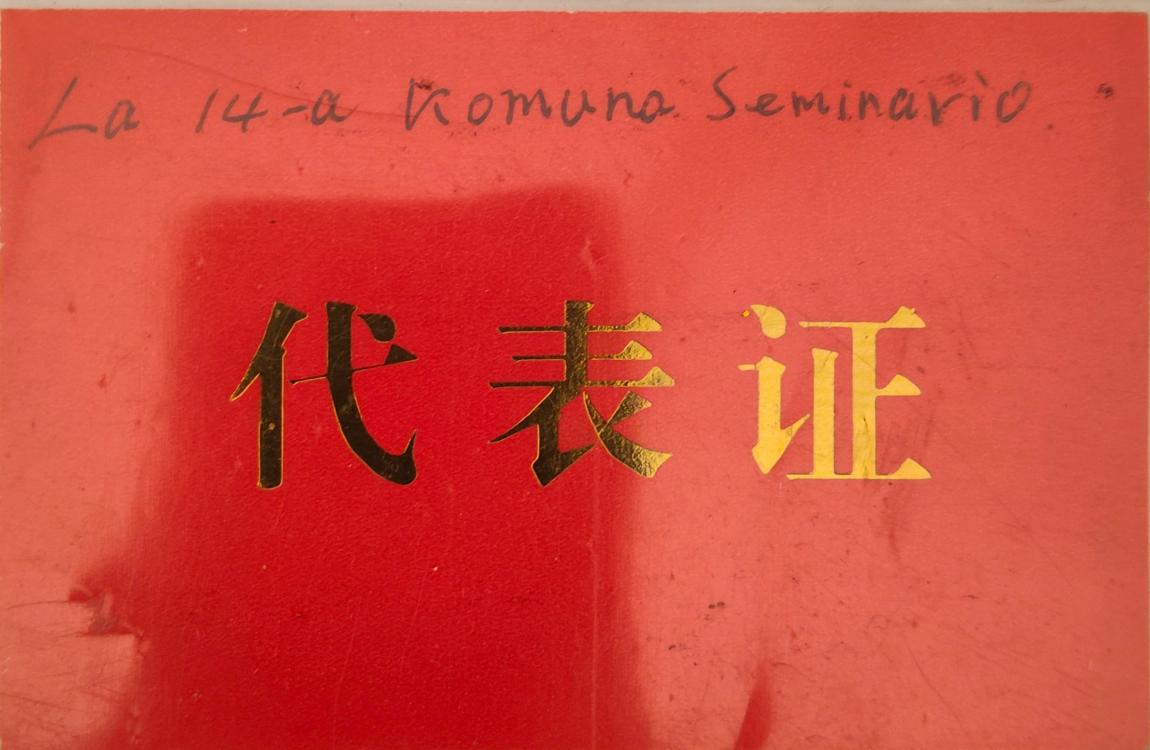 La 14-a Komuna Seminario
代表证